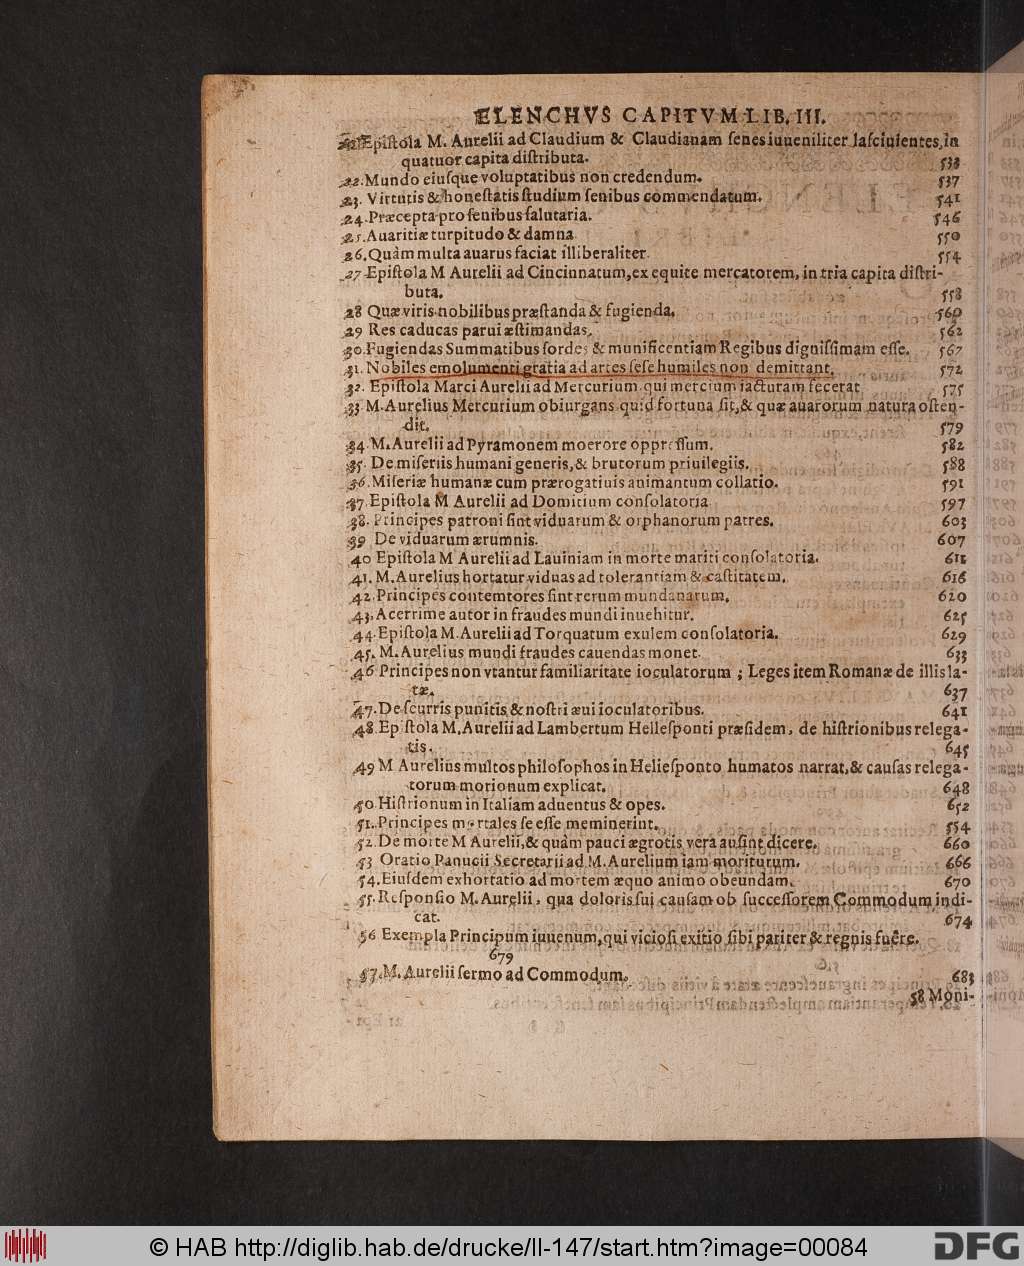 ELENCHVS CAPITVM LIB. III.
21 Epiſtola M. Aurelii ad Claudium & Claudianam ſenes iuueniliter laſciuientes, in
quatuor capita diſtributa. 533
22. Mundo eiuſque voluptatibus non credendum. 537
23. Virtutis & honeſtatis ſtudium ſenibus commendatum. 541
24. Præcepta pro ſenibus ſalutaria. 546
25. Auaritiæ turpitudo & damna. 550
26. Quàm multa auarus faciat illiberaliter. 554
27 Epiſtola M Aurelii ad Cincinnatum, ex equite mercatorem, in tria capita diſtri-
buta. 558
28 Quæ viris nobilibus præſtanda & fugienda. 560
29 Res caducas parui æſtimandas. 562
30. Fugiendas Summatibus ſordes & munificentiam Regibus digniſſimam eſſe. 567
31. Nobiles emolumenti gratia ad artes ſeſe humiles non demittant. 572
32. Epiſtola Marci Aurelii ad Mercurium qui mercium iacturam fecerat 575
33 M. Aurelius Mercurium obiurgans quid fortuna ſit, & quæ auarorum natura oſten-
dit. 579
34. M. Aurelii ad Pyramonem moerore oppreſſum. 582
35. De miſeriis humani generis, & brutorum priuilegiis. 588
36. Miſeriæ humanæ cum prærogatiuis animantum collatio. 591
37. Epiſtola M Aurelii ad Domitium conſolatoria. 597
38. Principes patroni ſint viduarum & orphanorum patres. 603
39 De viduarum ærumnis. 607
40 Epiſtola M Aurelii ad Lauiniam in morte mariti conſolatoria. 611
41. M. Aurelius hortatur viduas ad tolerantiam & caſtitatem. 616
42. Principes contemtores ſint rerum mundanarum. 620
43. Acerrime autor in fraudes mundi inuehitur. 625
44. Epiſtola M. Aurelii ad Torquatum exulem conſolatoria. 629
45. M. Aurelius mundi fraudes cauendas monet. 633
46 Principes non vtantur familiaritate ioculatorum ; Leges item Romanæ de illis la-
tæ. 637
47. De ſcurris punitis & noſtri æui ioculatoribus. 641
48. Epiſtola M. Aurelii ad Lambertum Helleſponti præſidem, de hiſtrionibus relega-
tis. 645
49 M Aurelius multos philoſophos in Helleſponto humatos narrat, & cauſas relega-
torum morionum explicat. 648
50. Hiſtrionum in Italiam aduentus & opes. 652
51. Principes mortales ſe eſſe meminerint. 554
52. De morte M Aurelii, & quàm pauci ægrotis vera auſint dicere. 660
53 Oratio Panucii Secretarii ad M. Aurelium iam moriturum. 666
54. Eiuſdem exhortatio ad mortem æquo animo obeundam. 670
55. Reſponſio M. Aurelii, qua doloris ſui cauſam ob ſucceſſorem Commodum indi-
cat. 674
56 Exempla Principum iuuenum, qui vicioſi exitio ſibi pariter & regnis fuêre.
679
57. M. Aurelii ſermo ad Commodum. 683
58 Moni-
© HAB http://diglib.hab.de/drucke/ll-147/start.htm?image=00084
DFG